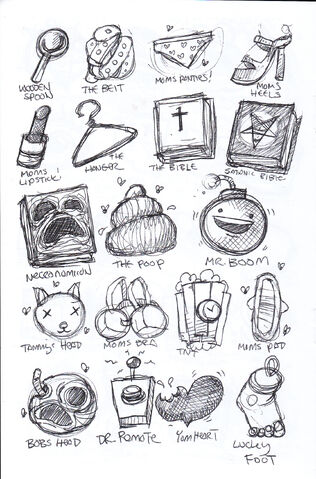 WOODEN SPOON
THE BELT
MOMS PANTIES!
MOMS HEELS
MOMS LIPSTICK
THE HANGER
THE BIBLE
SATANIC BIBLE
NECRONOMICON
THE POOP
MR BOOM
TAMMYS HEAD
MOMS BRA
TNT
MOMS PAD
BOBS HEAD
DR. REMOTE
YUM HEART
LUCKY FOOT